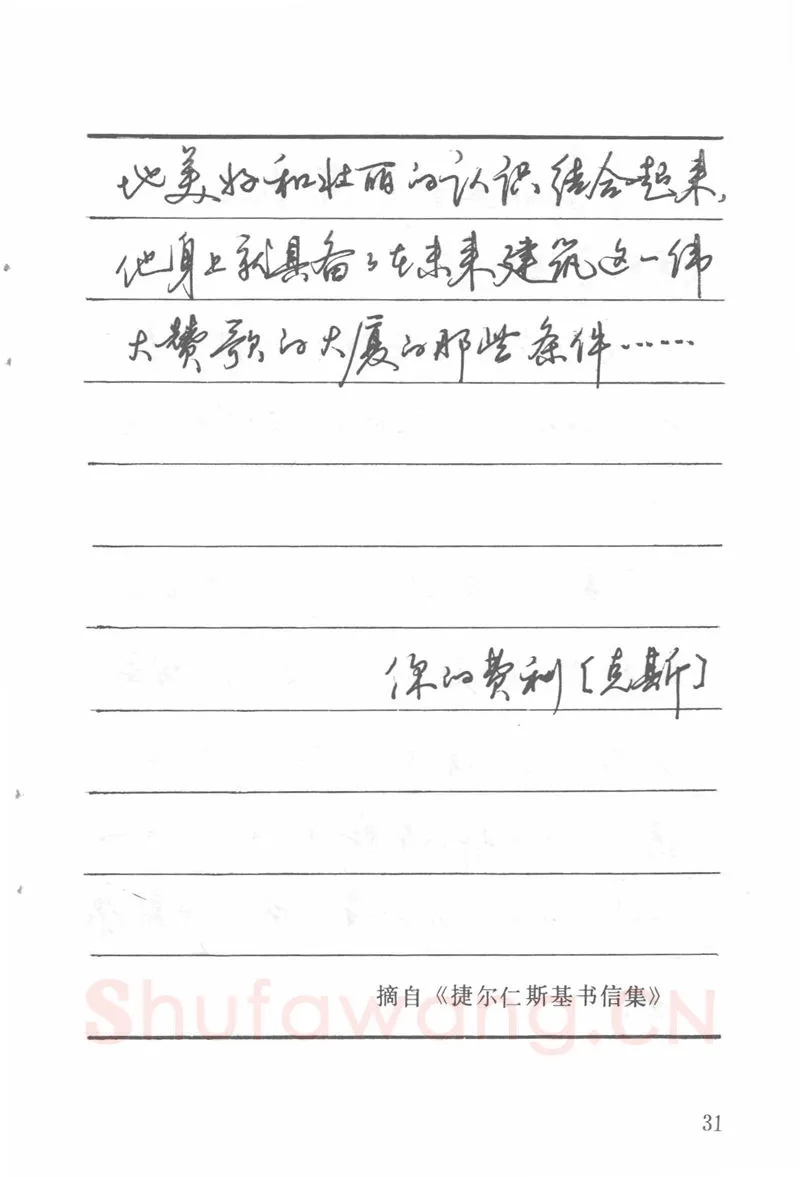 地美好和壮丽的认识结合起来，
他身上就具备了在未来建筑这一伟
大赞歌的大厦的那些条件……
你的费利〔克斯〕
摘自《捷尔仁斯基书信集》
Shufawang.CN
31